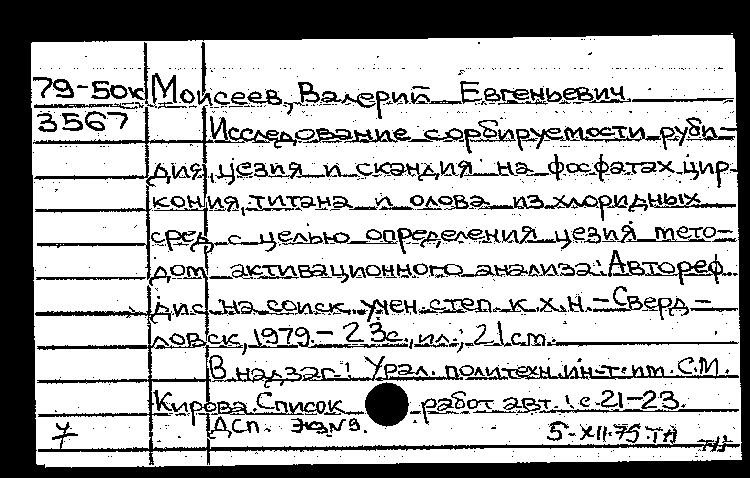 79-50к Моисеев, Валерий Евгеньевич
3567 Исследование сорбируемости руби-
дия, цезия и скандия на фосфатах цир-
кония, титана и олова из хлоридных
сред с целью определения цезия мето-
дом активационного анализа: Автореф
дис на соиск учен. степ. к. х. н. - Сверд-
ловск, 1979. - 23с., ил.; 21 см.
В надзаг: Урал. политехн. ин-т. им. С.М.
Кирова. Список работ авт.: с. 21-23.
7 ДСП. Экз №9. 5-XII-75